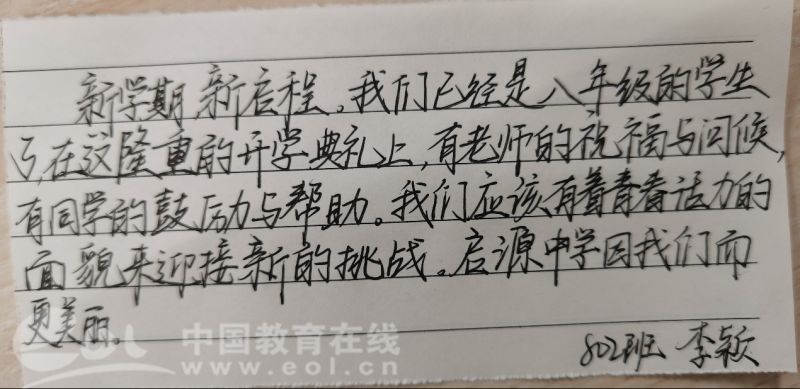 新学期 新启程。我们已经是八年级的学生
了，在这隆重的开学典礼上，有老师的祝福与问候，
有同学的鼓励与帮助。我们应该有着青春活力的
面貌来迎接新的挑战。启源中学因我们而
更美丽。
802班 李颖
eol 中国教育在线
www.eol.cn